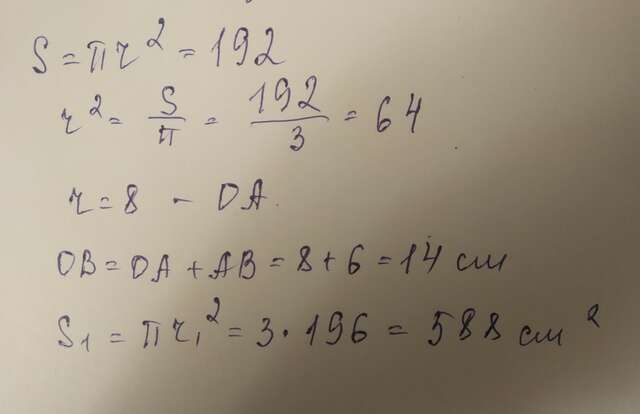 S = πr² = 192
r² = S/π = 192/3 = 64
r = 8 - OA.
OB = OA + AB = 8 + 6 = 14 см
S₁ = πr₁² = 3 · 196 = 588 см²